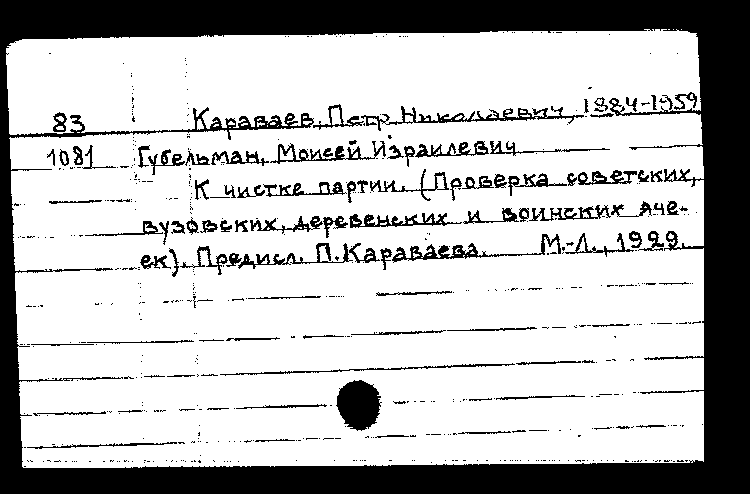 83 Караваев, Петр Николаевич, 1884-1959
1081 Губельман, Моисей Израилевич
К чистке партии. (Проверка советских,
вузовских, деревенских и воинских яче-
ек). Предисл. П.Караваева. М.-Л., 1929.